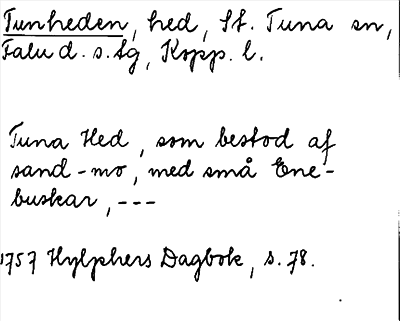 Tunheden, hed, St. Tuna sn,
Falu d. s. tg, Kopp. l.
Tuna Hed, som bestod af
sand-mo, med små Ene-
buskar, ---
1757 Hylphers Dagbok, s. 78.